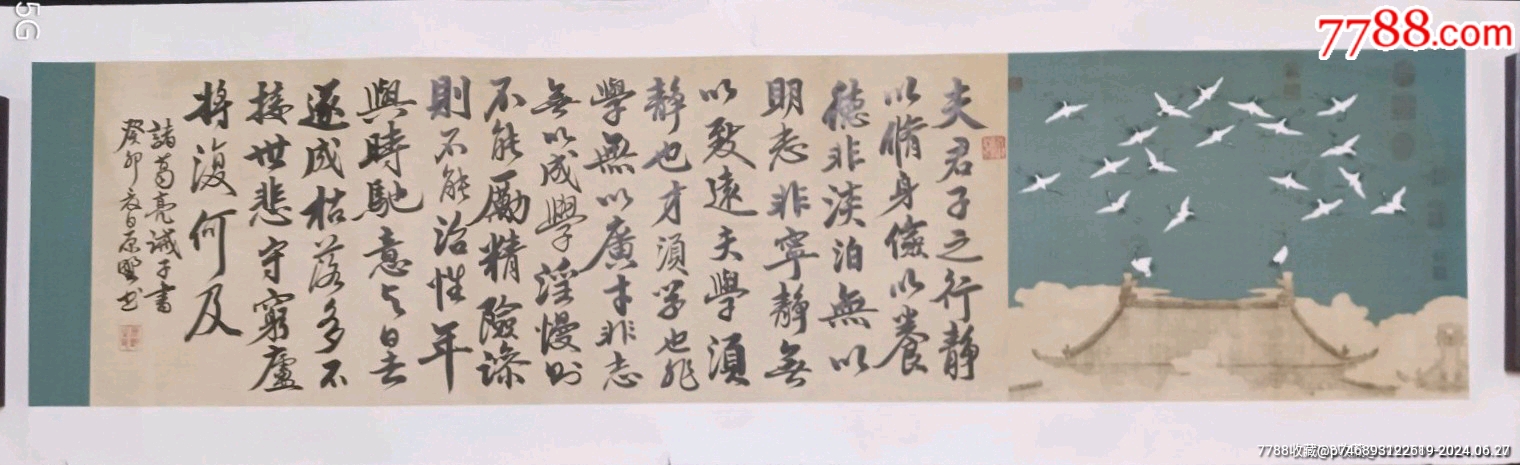 夫君子之行静
以脩身儉以養
德非淡泊無以
明志非寧静無
以致遠夫學須
静也才須学也非
學無以廣才非志
無以成學淫慢則
不能勵精險躁
則不能治性年
與時馳意与日去
遂成枯落多不
接世悲守窮廬
將復何及
諸葛亮誡子書
癸卯春日书
7788.com
5G
7788收藏@p746893122619-2024.06.27